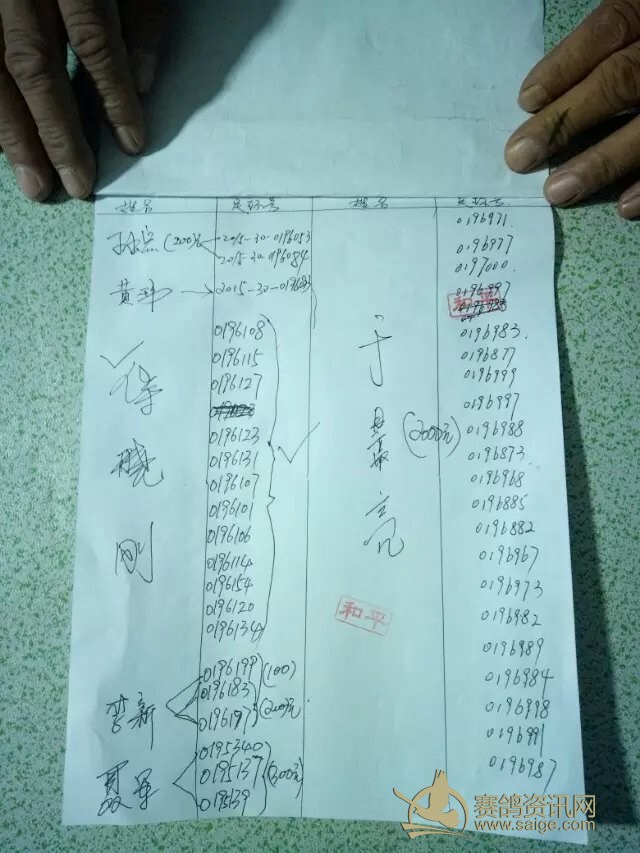 姓名 足环号 姓名 足环号
(200元) 2015-30-0196053
2015-30-0196084
黄玮 2015-30-019
0196108
0196115
0196127
0196123
0196131
0196107
0196101
0196106
0196114
0196154
0196120
0196134
晓刚
李新
0196199 (100)
0196183
0196197 (200元)
聂军
0195340
0195137 (300元)
0195139
于 (2000元)
和平
0196971
0196977
0197000
和平
0196983
0196877
0196999
0196997
0196988
0196873
0196968
0196885
0196882
0196967
0196973
0196982
0196989
0196984
0196998
0196991
0196987
赛鸽资讯网
www.saige.com